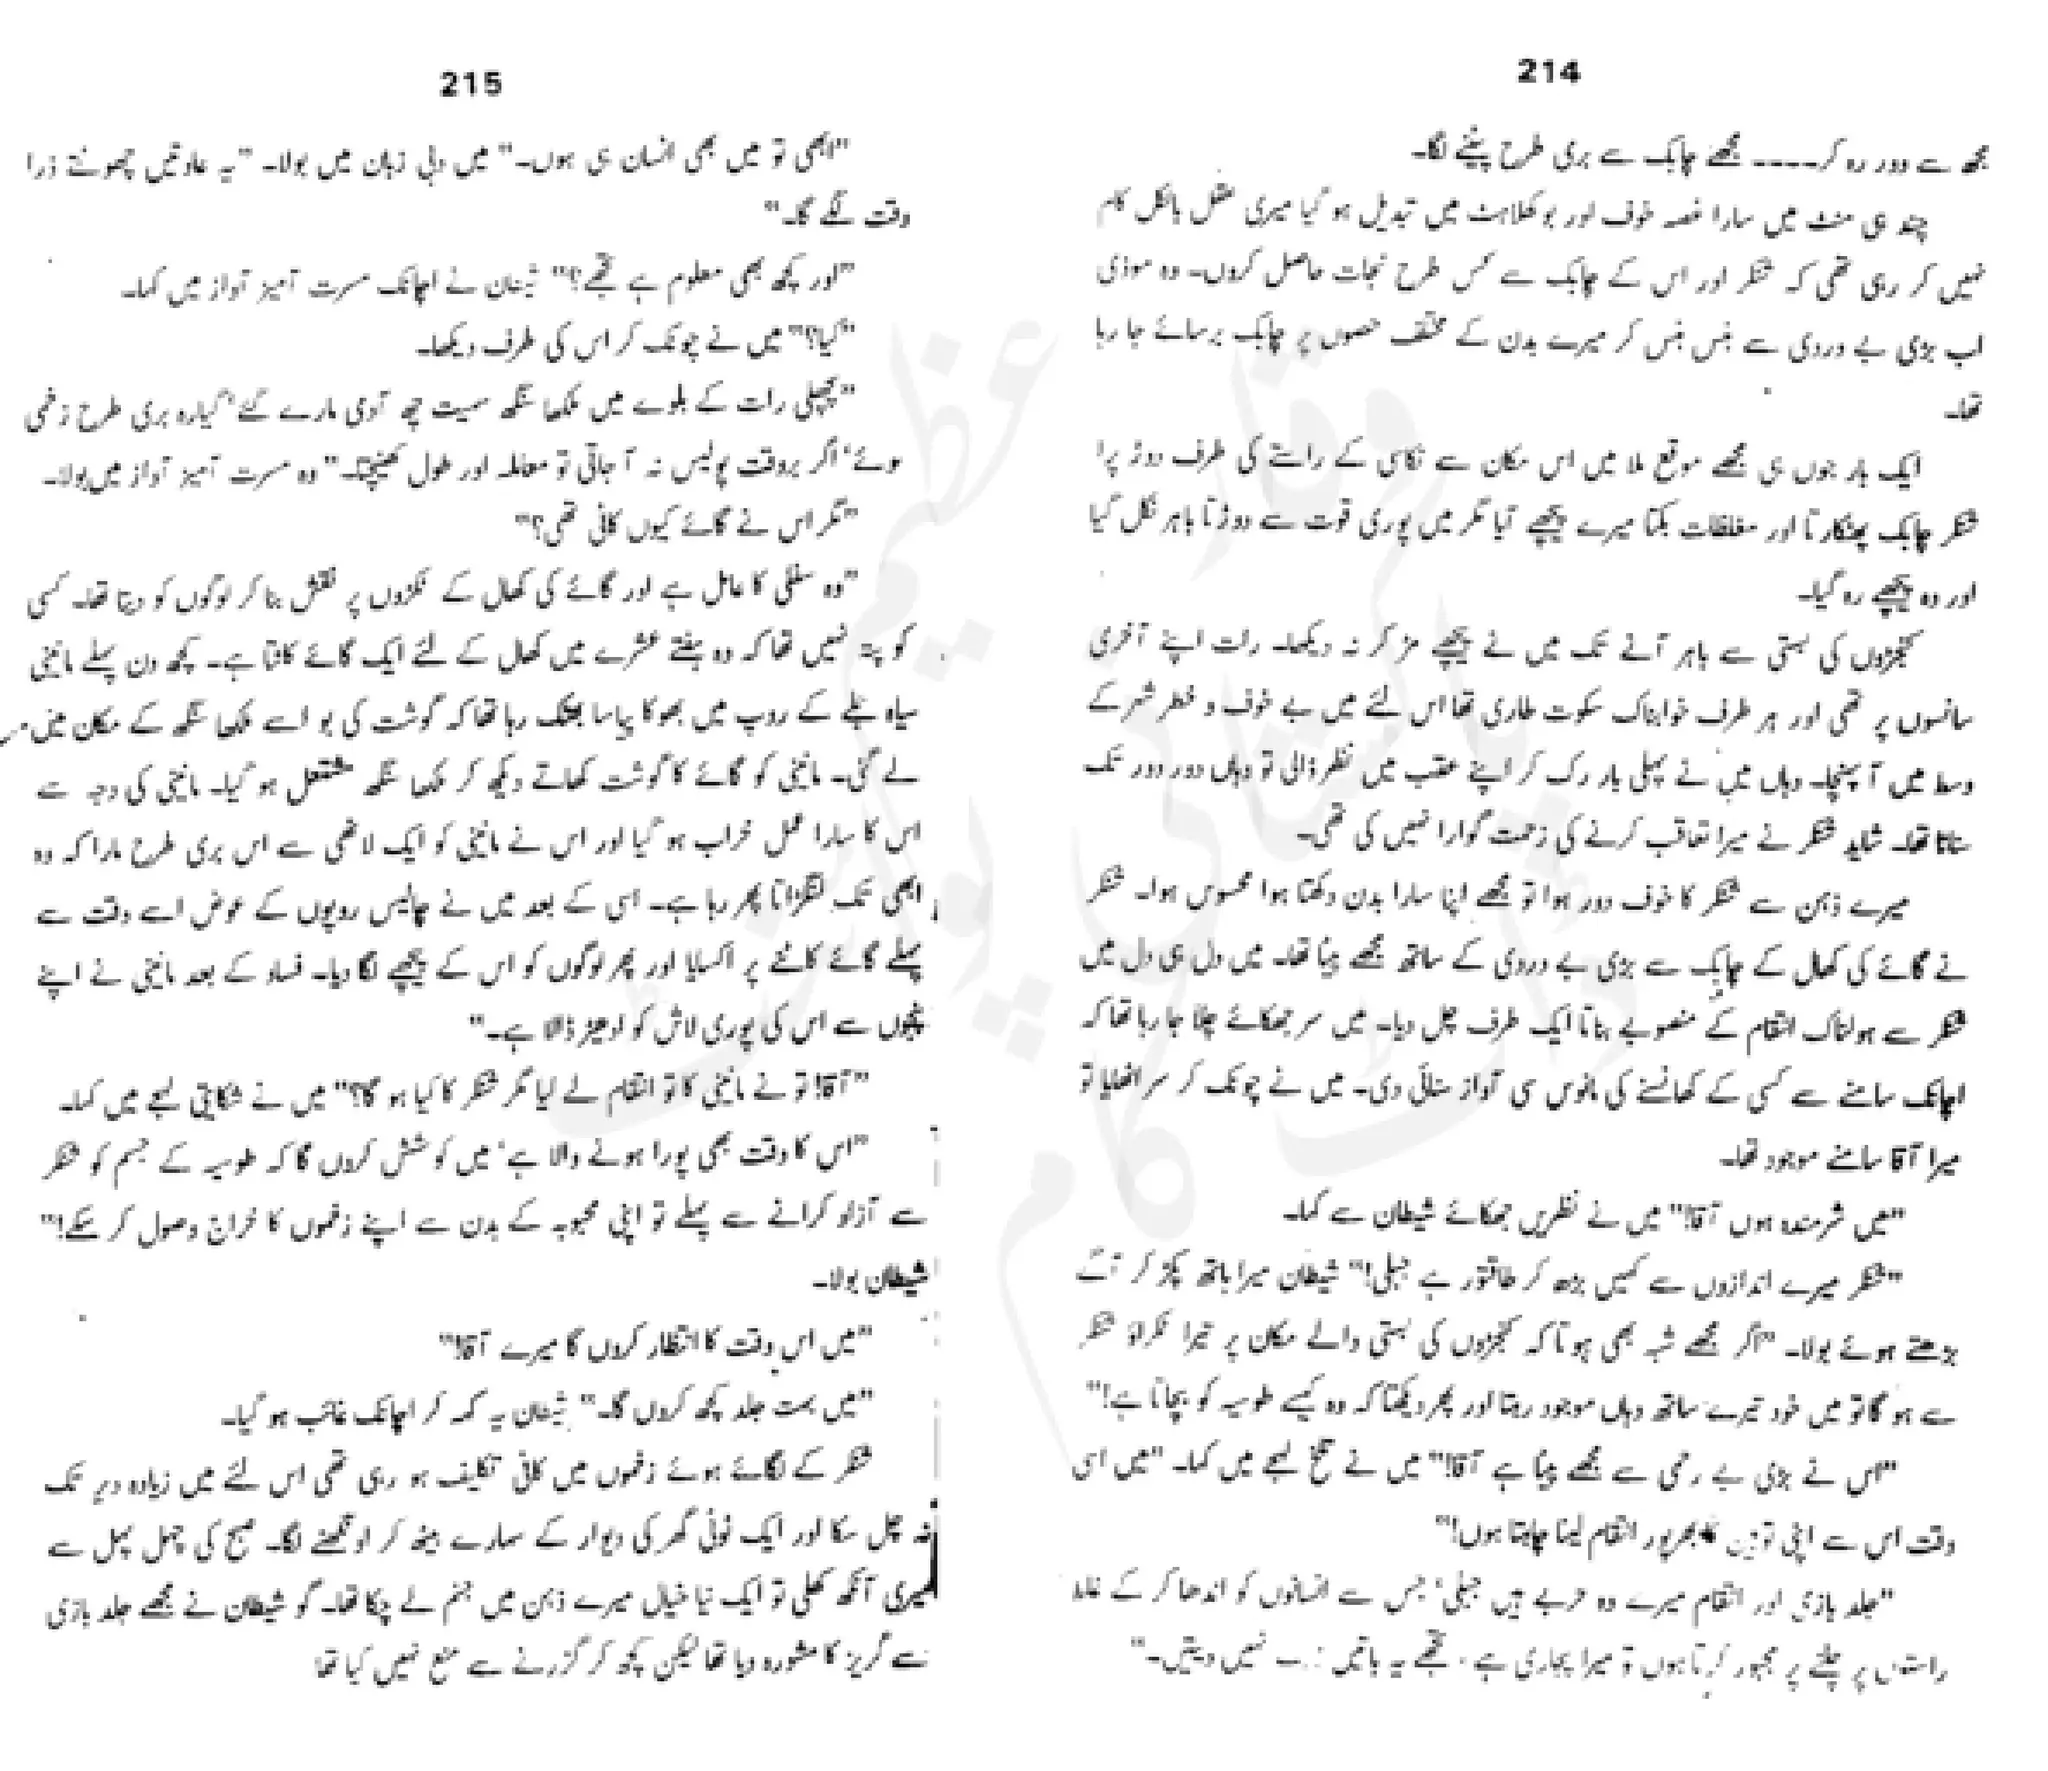 214
مجھ سے دور رہ کر---- مجھے چابک سے بری طرح پیٹنے لگا۔
چند ہی منٹ میں سارا غصہ خوف اور بوکھلاہٹ میں تبدیل ہو گیا میری عقل بالکل کام
نہیں کر رہی تھی کہ شنکر اور اس کے چابک سے کس طرح نجات حاصل کروں۔ وہ موذی
اب بڑی بے دردی سے ہنس ہنس کر میرے بدن کے مختلف حصوں پر چابک برسائے جا رہا
تھا۔
ایک بار جوں ہی مجھے موقع ملا میں اس مکان سے نکاسی کے راستے کی طرف دوڑ پڑا
شنکر چابک پھٹکارتا اور مغلظات بکتا میرے پیچھے آیا مگر میں پوری قوت سے دوڑتا باہر نکل گیا
اور وہ پیچھے رہ گیا۔
کنجڑوں کی بستی سے باہر آنے تک میں نے پیچھے مڑ کر نہ دیکھا۔ رات اپنے آخری
سانسوں پر تھی اور ہر طرف خوابناک سکوت طاری تھا اس لئے میں بے خوف و خطر شہر کے
وسط میں آ پہنچا۔ وہاں میں نے پہلی بار رک کر اپنے عقب میں نظر ڈالی تو وہاں دور دور تک
سناٹا تھا۔ شاید شنکر نے میرا تعاقب کرنے کی زحمت گوارا نہیں کی تھی۔
میرے ذہن سے شنکر کا خوف دور ہوا تو مجھے اپنا سارا بدن دکھتا ہوا محسوس ہوا۔ شنکر
نے گائے کی کھال کے چابک سے بڑی بے دردی کے ساتھ مجھے پیٹا تھا۔ میں دل ہی دل میں
شنکر سے ہولناک انتقام کے منصوبے بناتا ایک طرف چل دیا۔ میں سر جھکائے چلا جا رہا تھا کہ
اچانک سامنے سے کسی کے کھانسنے کی مانوس سی آواز سنائی دی۔ میں نے چونک کر سر اٹھایا تو
میرا آقا سامنے موجود تھا۔
"میں شرمندہ ہوں آقا!" میں نے نظریں جھکائے شیطان سے کہا۔
"شنکر میرے اندازوں سے کہیں بڑھ کر طاقتور ہے جبلی!" شیطان میرا ہاتھ پکڑ کر آگے
بڑھتے ہوئے بولا۔ "اگر مجھے شبہ بھی ہوتا کہ کنجڑوں کی بستی والے مکان پر تیرا ٹکراؤ شنکر
سے ہو گا تو میں خود تیرے ساتھ وہاں موجود رہتا اور پھر دیکھتا کہ وہ کیسے طوبیہ کو بچاتا ہے!"
"اس نے بڑی بے رحمی سے مجھے پیٹا ہے آقا!" میں نے تلخ لہجے میں کہا۔ "میں اسی
وقت اس سے اپنی توہین کا بھرپور انتقام لینا چاہتا ہوں!"
"جلد بازی اور انتقام میرے وہ حربے ہیں جبلی' جس سے انسانوں کو اندھا کر کے غلط
راستوں پر چلنے پر مجبور کرتا ہوں تو میرا پجاری ہے، تجھے یہ باتیں نہیں دیتیں۔"
215
"ابھی تو میں بھی انسان ہی ہوں۔" میں دبی زبان میں بولا۔ "یہ عادتیں چھوٹتے ذرا
وقت لگے گا۔"
"اور کچھ بھی معلوم ہے تجھے؟" شیطان نے اچانک مسرت آمیز آواز میں کہا۔
"کیا؟" میں نے چونک کر اس کی طرف دیکھا۔
"پچھلی رات کے بلوے میں مکھا سنگھ سمیت چھ آدمی مارے گئے' گیارہ بری طرح زخمی
ہوئے' اگر بروقت پولیس نہ آ جاتی تو معاملہ اور طول کھینچتا۔" وہ مسرت آمیز آواز میں بولا۔
"مگر اس نے گائے کیوں کاٹی تھی؟"
"وہ سفلی کا عامل ہے اور گائے کی کھال کے ٹکڑوں پر نقش بنا کر لوگوں کو دیتا تھا۔ کسی
کو پتہ نہیں تھا کہ وہ ہفتے عشرے میں کھال کے لئے ایک گائے کاٹتا ہے۔ کچھ دن پہلے مانینی
سیاہ بلے کے روپ میں بھوکا پیاسا بھٹک رہا تھا کہ گوشت کی بو اسے مکھا سنگھ کے مکان میں
لے گئی۔ مانینی کو گائے کا گوشت کھاتے دیکھ کر مکھا سنگھ مشتعل ہو گیا۔ مانینی کی وجہ سے
اس کا سارا عمل خراب ہو گیا اور اس نے مانینی کو ایک لاٹھی سے اس بری طرح مارا کہ وہ
ابھی تک لنگڑاتا پھر رہا ہے۔ اسی کے بعد میں نے چالیس روپوں کے عوض اسے وقت سے
پہلے گائے کاٹنے پر اکسایا اور پھر لوگوں کو اس کے پیچھے لگا دیا۔ فساد کے بعد مانینی نے اپنے
پنجوں سے اس کی پوری لاش کو ادھیڑ ڈالا ہے۔"
"آقا! تو نے مانینی کا تو انتقام لے لیا مگر شنکر کا کیا ہو گا؟" میں نے شکایتی لہجے میں کہا۔
"اس کا وقت بھی پورا ہونے والا ہے' میں کوشش کروں گا کہ طوبیہ کے جسم کو شنکر
سے آزاد کرانے سے پہلے تو اپنی محبوبہ کے بدن سے اپنے زخموں کا خراج وصول کر سکے!"
شیطان بولا۔
"میں اس وقت کا انتظار کروں گا میرے آقا!"
"میں بہت جلد کچھ کروں گا۔" شیطان یہ کہہ کر اچانک غائب ہو گیا۔
شنکر کے لگائے ہوئے زخموں میں کافی تکلیف ہو رہی تھی اس لئے میں زیادہ دیر تک
نہ چل سکا اور ایک ٹوٹی گھر کی دیوار کے سہارے بیٹھ کر اونگھنے لگا۔ صبح کی چہل پہل سے
میری آنکھ کھلی تو ایک نیا خیال میرے ذہن میں جنم لے چکا تھا۔ گو شیطان نے مجھے جلد بازی
سے گریز کا مشورہ دیا تھا لیکن کچھ کر گزرنے سے منع نہیں کیا تھا
وقار عظیم
پاکستانی پوائنٹ
ڈاٹ کام